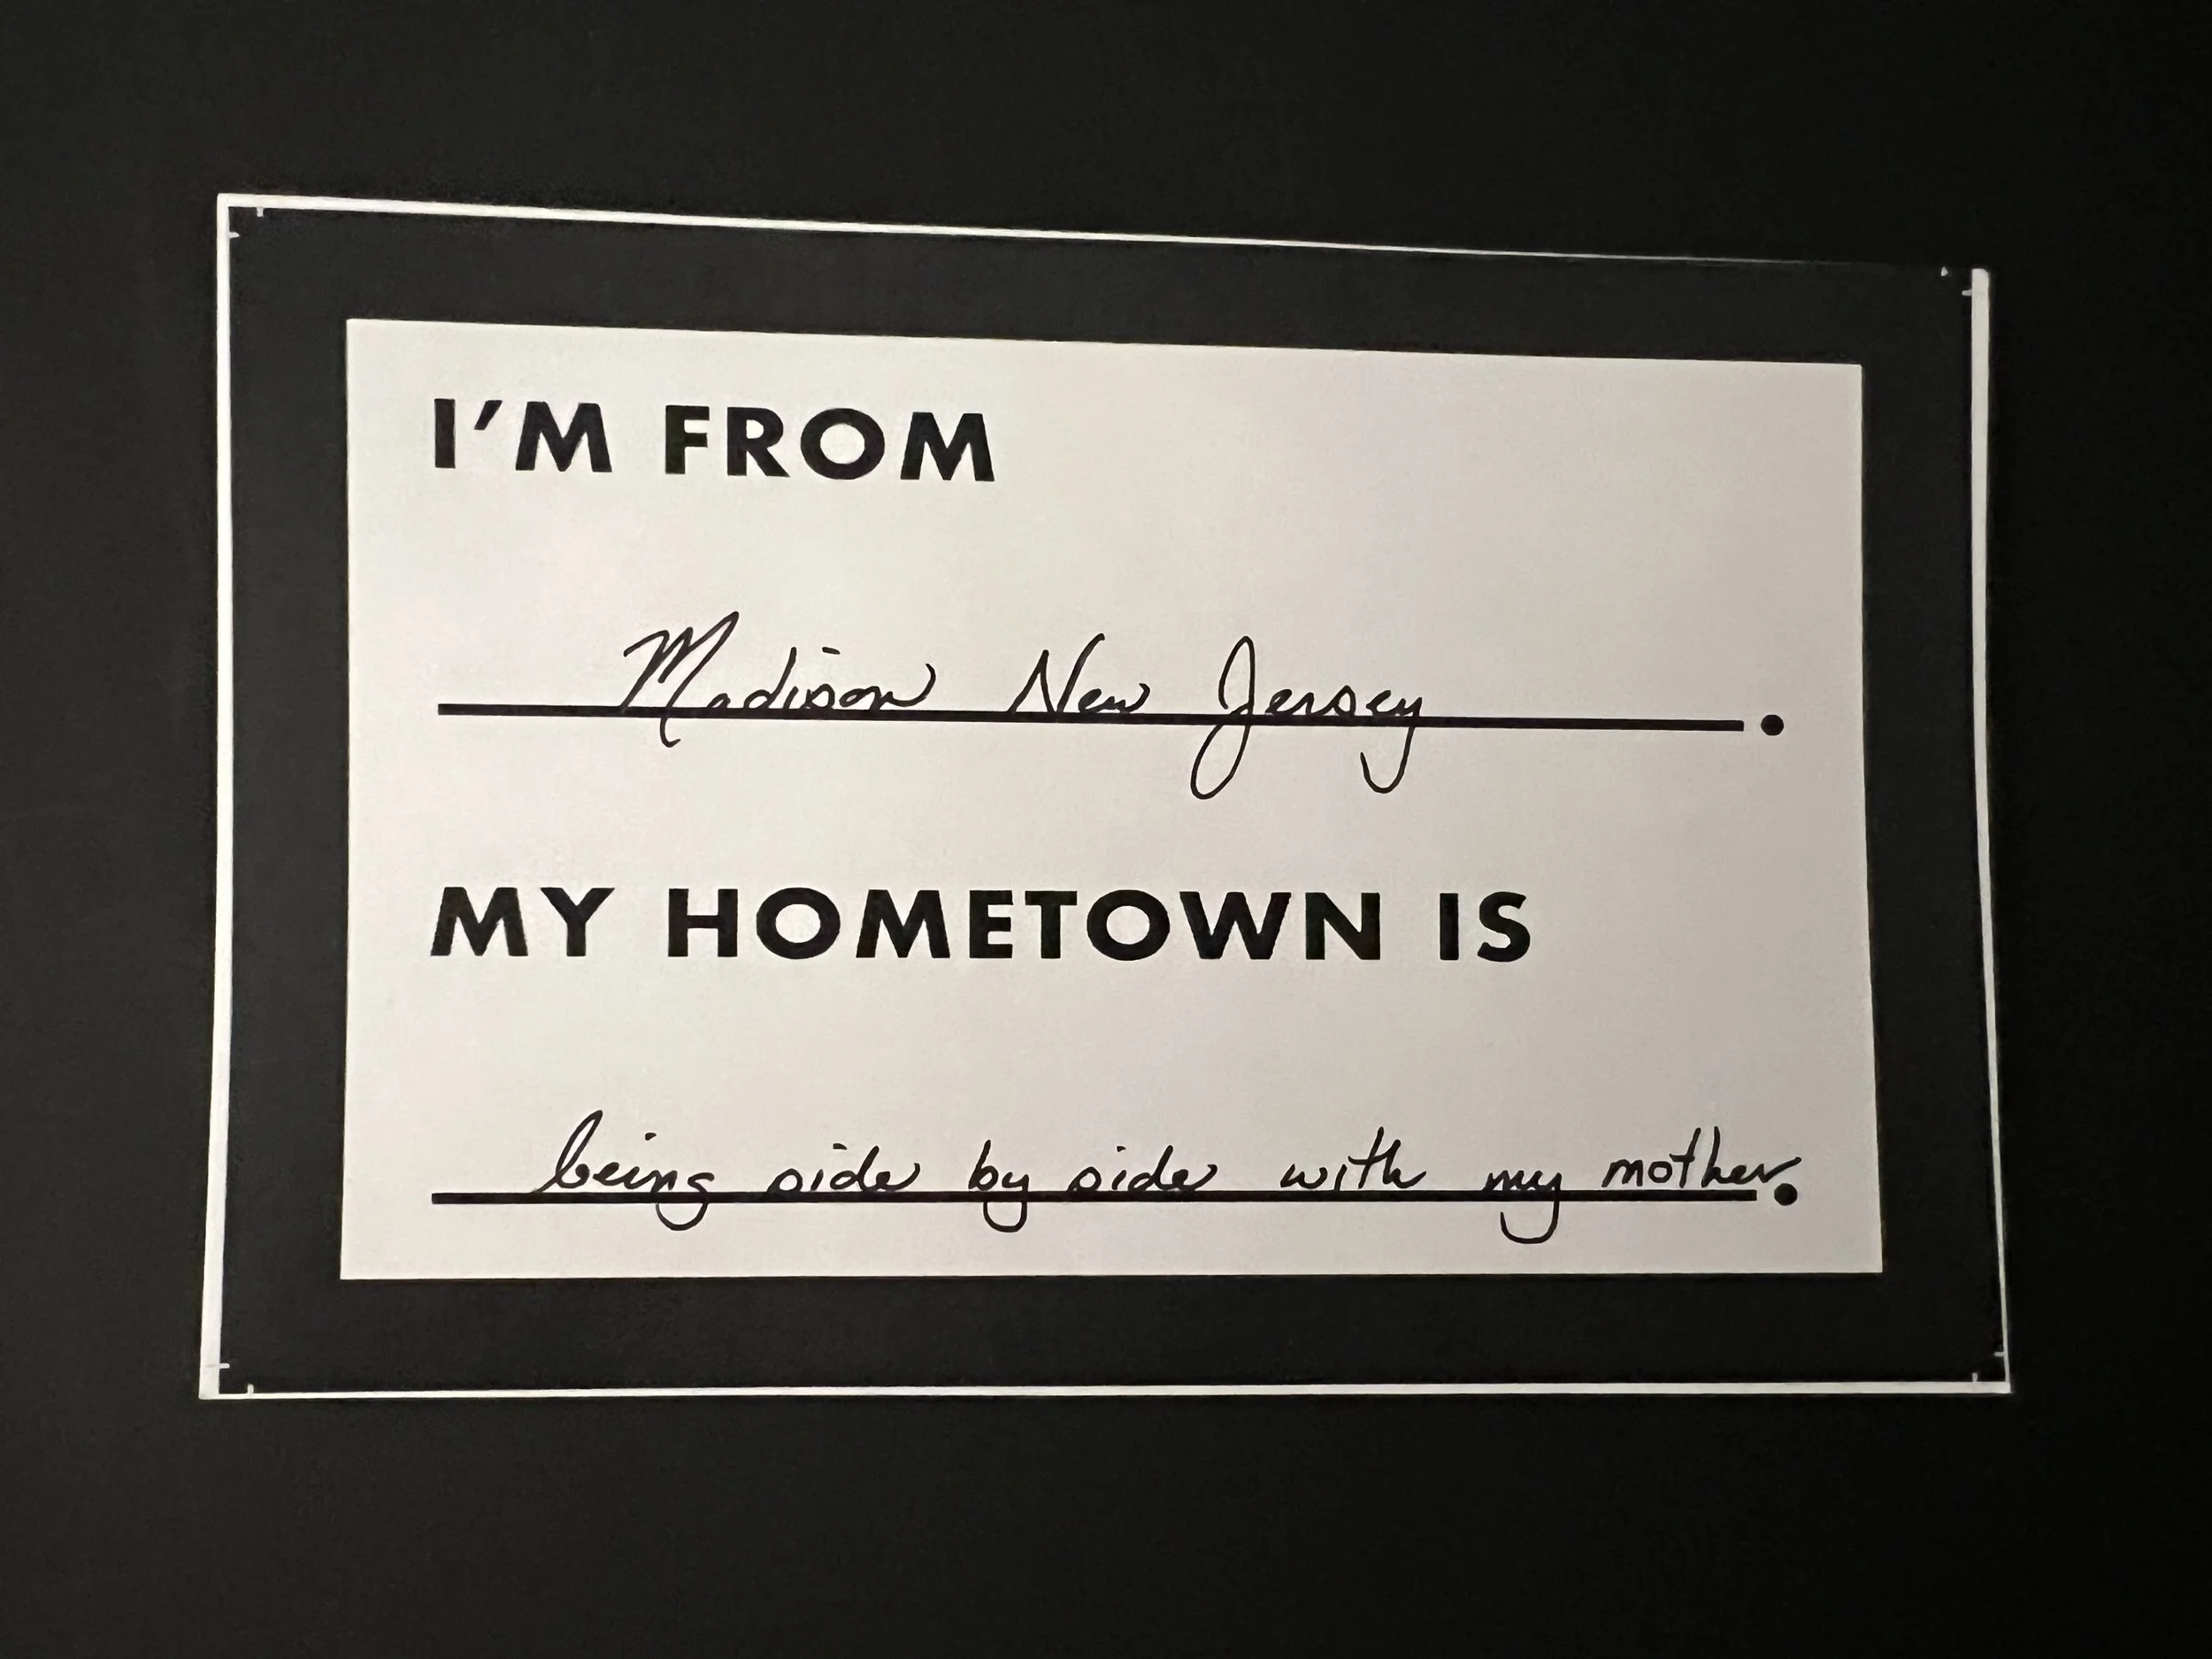 I'M FROM
Madison New Jersey.
MY HOMETOWN IS
being side by side with my mother.